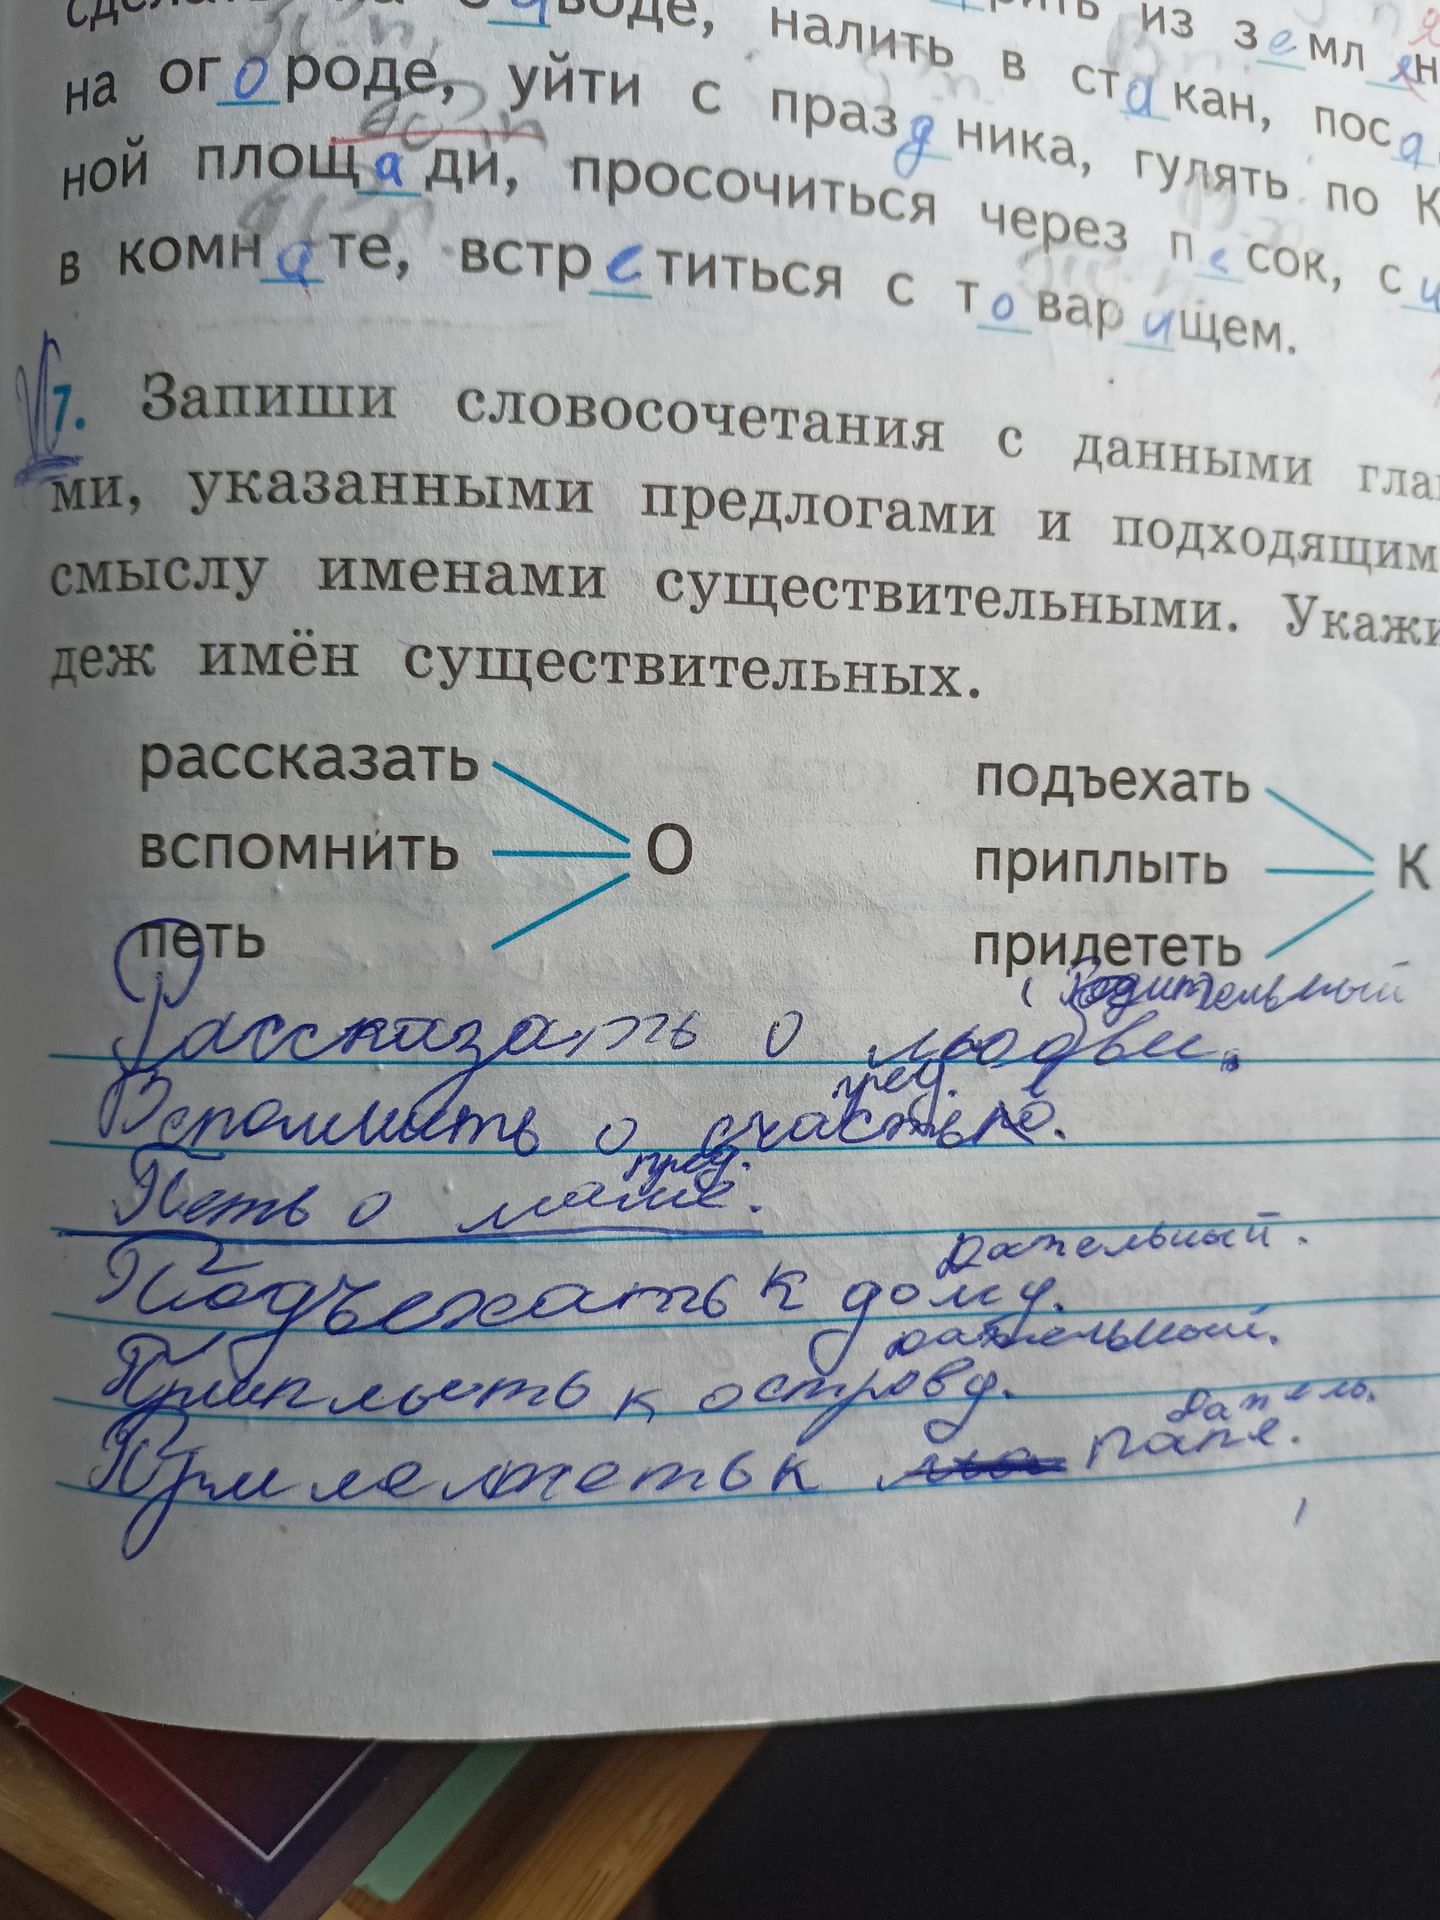 в воде, налить из з е мл
на ог о роде, уйти с в ст а кан, пос а
ной площ а ди, праз д ника, гулять по К
просочиться через п е сок, с и
в комн а те, встр е титься с т о вар и щем.
7. Запиши словосочетания с данными глав
ми, указанными предлогами и подходящим
смыслу именами существительными. Укажи
деж имён существительных.
рассказать
вспомнить
петь
О
подъехать
приплыть
прилететь
К
Родительный
Рассказать о любви.
пред.
Вспомнить о счастье.
пред.
Петь о маме.
Дательный.
Подъехать к дому.
Дательный.
Приплыть к острову.
Датель.
Прилететь к папе.